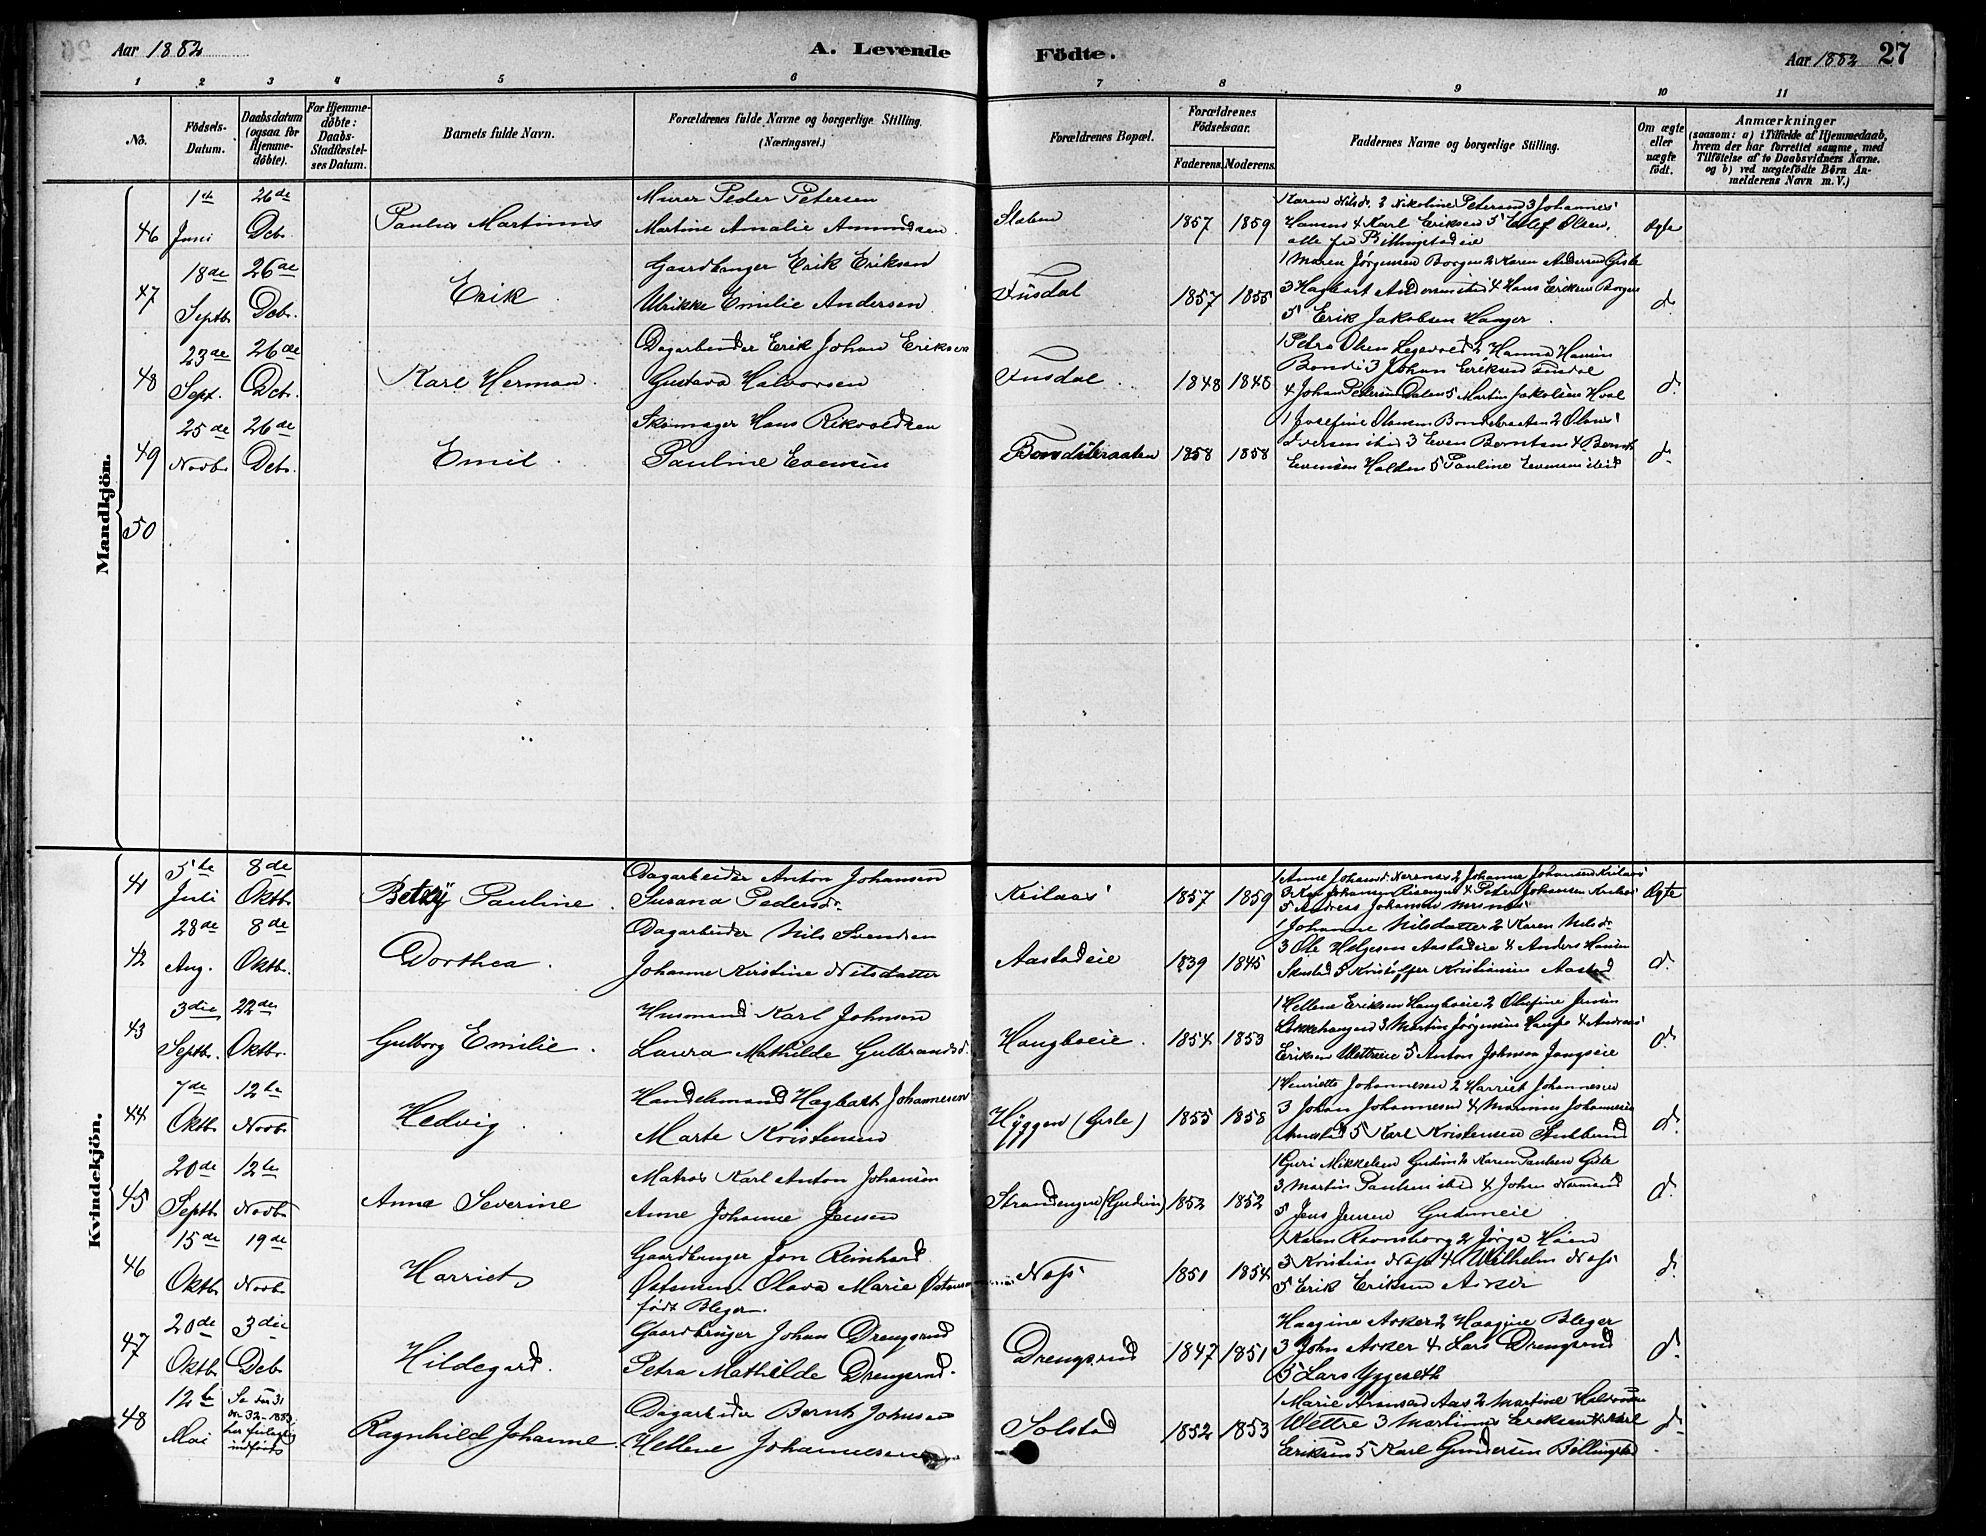 Aar 1882
A. Levende Födte.
Aar 1882 27
1 2 3 4 5 6 7 8 9 10 11
No.
Födsels-Datum.
Daabsdatum (ogsaa for Hjemme-döbte).
For Hjemme-döbte: Daabs-Stadfæstel-ses Datum.
Barnets fulde Navn.
Forældrenes fulde Navne og borgerlige Stilling. (Næringsvei.)
Forældrenes Bopæl.
Forældrenes Födselsaar.
Faderens. Moderens.
Faddernes Navne og borgerlige Stilling.
Om ægte eller uægte födt.
Anmærkninger
(saasom: a) i Tilfælde af Hjemmedaab, hvem der har forrettet samme, med Tilföielse af to Daabsvidners Navne. og b) ved uægtefödte Börn An-melderens Navn m. V.)
Mandkjön.
46 1ste Juni 26de Dcb. Paulus Martinus
Murer Peder Petersen
Martine Amalie Amundsen
Staben 1857 1859
Karen Nilsd. 2 Nikoline Petersen 3 Johannes
Hansen 4 Karl Eriksen 5 Edlef Olsen,
alle fra Billingstadeie
ægte
47 18de Septb. 26de Dcb. Erik
Gaardbruger Erik Eriksen
Ulrikke Emilie Andersen
Fusdal 1857 1855
1 Maren Jørgensen Borgen 2 Karen Andersen Gisle
3 Hagbart Andersen ibid 4 Hans Eriksen Borgen
5 Erik Jakobsen Hanger
d.
48 23de Sept. 26de Dcb. Karl Herman
Dagarbeider Erik Johan Eriksen
Gustava Halvorsen
Fusdal 1848 1846
1 Petra Olsen 2 Hanna Hansen
Bondi 3 Johan Eriksen Fusdal
4 Johan Petersen Dalen 5 Martin Jakobsen Hval
d.
49 25de Novb. 26de Dcb. Emil
Skomager Hans Rikvoldsen
Pauline Evensen
Bondibraaten 1858 1858
1 Josefine Olausen Bondibraaten 2 Olaus
Iversen ibid 3 Even Berntsen 4 Bernt
Evensen Halden 5 Pauline Evensen ibid
d.
50
Kvindekjön.
41 5te Juli 8de Oktb. Betzÿ Pauline
Dagarbeider Anton Johansen
Susana Pedersd.
Kilaas 1857 1859
1 Anne Johansd. Nesnes 2 Johanne Johansen Kilaas
3 Karl Johansen Risenga 4 Peter Johansen Kilaas
5 Andreas Johansen Nesnes
Ægte
42 28de Aug. 8de Oktb. Dorthea
Dagarbeider Nils Svendsen
Johanne Kirstine Nilsdatter
Aastadeie 1839 1845
1 Johanne Nilsdatter 2 Karen Nilsd.
3 Ole Helgesen Aastadeie 4 Anders Hansen
Skustad 5 Kristoffer Kristiansen Aastad
d.
43 3die Septb. 22de Oktb. Gulborg Emilie
Husmand Karl Johnsen
Laura Mathilde Gulbrandsd.
Haugboeie 1854 1853
1 Hellene Eriksen Haugboeie 2 Olufine Jensen
Løkkehaugen 3 Martin Jørgensen Haugbo 4 Andreas
Eriksen Wettreeie 5 Anton Johnsen Jongseie
d.
44 7de Oktb. 12te Novb. Hedvig
Handelsmand Hagbart Johannesen
Marte Kristensen
Hÿggen (Gisle) 1855 1858
1 Henriette Johannesen 2 Harriet Johannesen
3 Johan Johannesen 4 Marinus Johannesen
Arnestad 5 Karl Kristensen Stutlund
d.
45 20de Septb. 12te Novb. Anne Severine
Matros Karl Anton Johansen
Anne Johanne Jensen
Strandengen (Gudim) 1852 1852
1 Guri Mikkelsen Gudim 2 Karen Paulsen Gisle
3 Martin Paulsen ibid 4 John Normand
5 Jens Jensen Gudimeie
d.
46 15de Oktb. 19de Novb. Harriet
Gaardbruger Jon Reinhard
Østensen Olava Marie Østensen
født Bleger.
Næs 1851 1854
1 Karen Ravnsborg 2 Jørga Høien
3 Kristian Næs 4 Wilhelm Næs
5 Erik Eriksen Asker
d.
47 20de Oktb. 3die Dcb. Hildegard
Gaardbruger Johan Drengsrud
Petra Mathilde Drengsrud
Drengsrud 1847 1851
Haagine Asker 2 Haagine Bleger
3 John Asker 4 Lars Drengsrud
5 Lars Yggeseth
d.
48 12te Mai
Se No 31 og 32 - 1883, her feilagtig indført
Ragnhild Johanne
Dagarbeider Bernt Johnsen
Hellene Johannesen
Solstad 1852 1853
1 Marie Aas 2 Martine Halvorsen
Wettre 3 Martinus Eriksen 4 Karl
Eriksen 5 Karl Gundersen Billingstad
d.